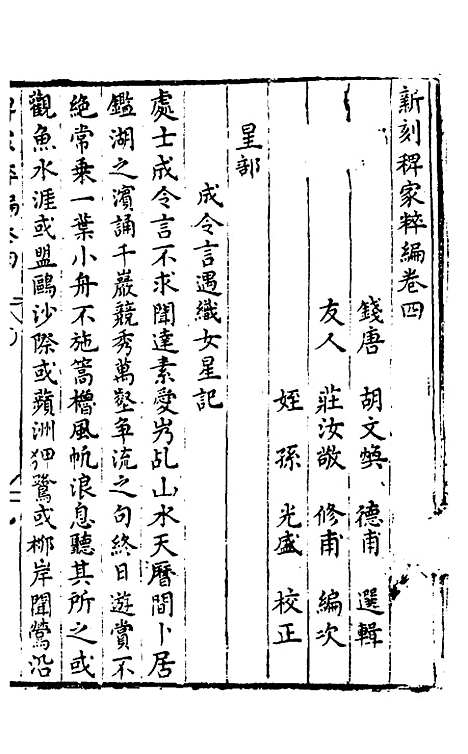 新刻稗家粹編卷四
錢唐 胡文煥 德甫 選輯
友人 莊汝敬 修甫 編次
姪孫 光盛 校正
星部
成令言遇織女星記
處士成令言不求聞達素愛㞦乩山水天曆間卜居
鑑湖之濱誦千巖競秀萬壑爭流之句終日遊賞不
絶常乘一葉小舟不施篙櫓風帆浪息聽其所之或
觀魚水涯或盟鷗沙際或蘋洲狎鷺或栁岸聞鶯沿